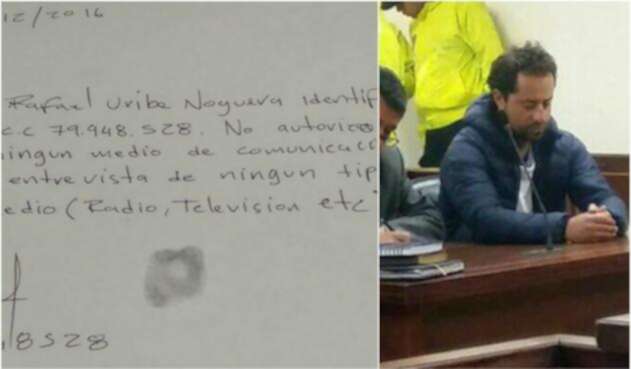 12/2016
Rafael Uribe Noguera identif
c.c 79.948.528. No autorizo
ningun medio de comunicaci
entrevista de ningun tip
edio (Radio, Television etc
8528